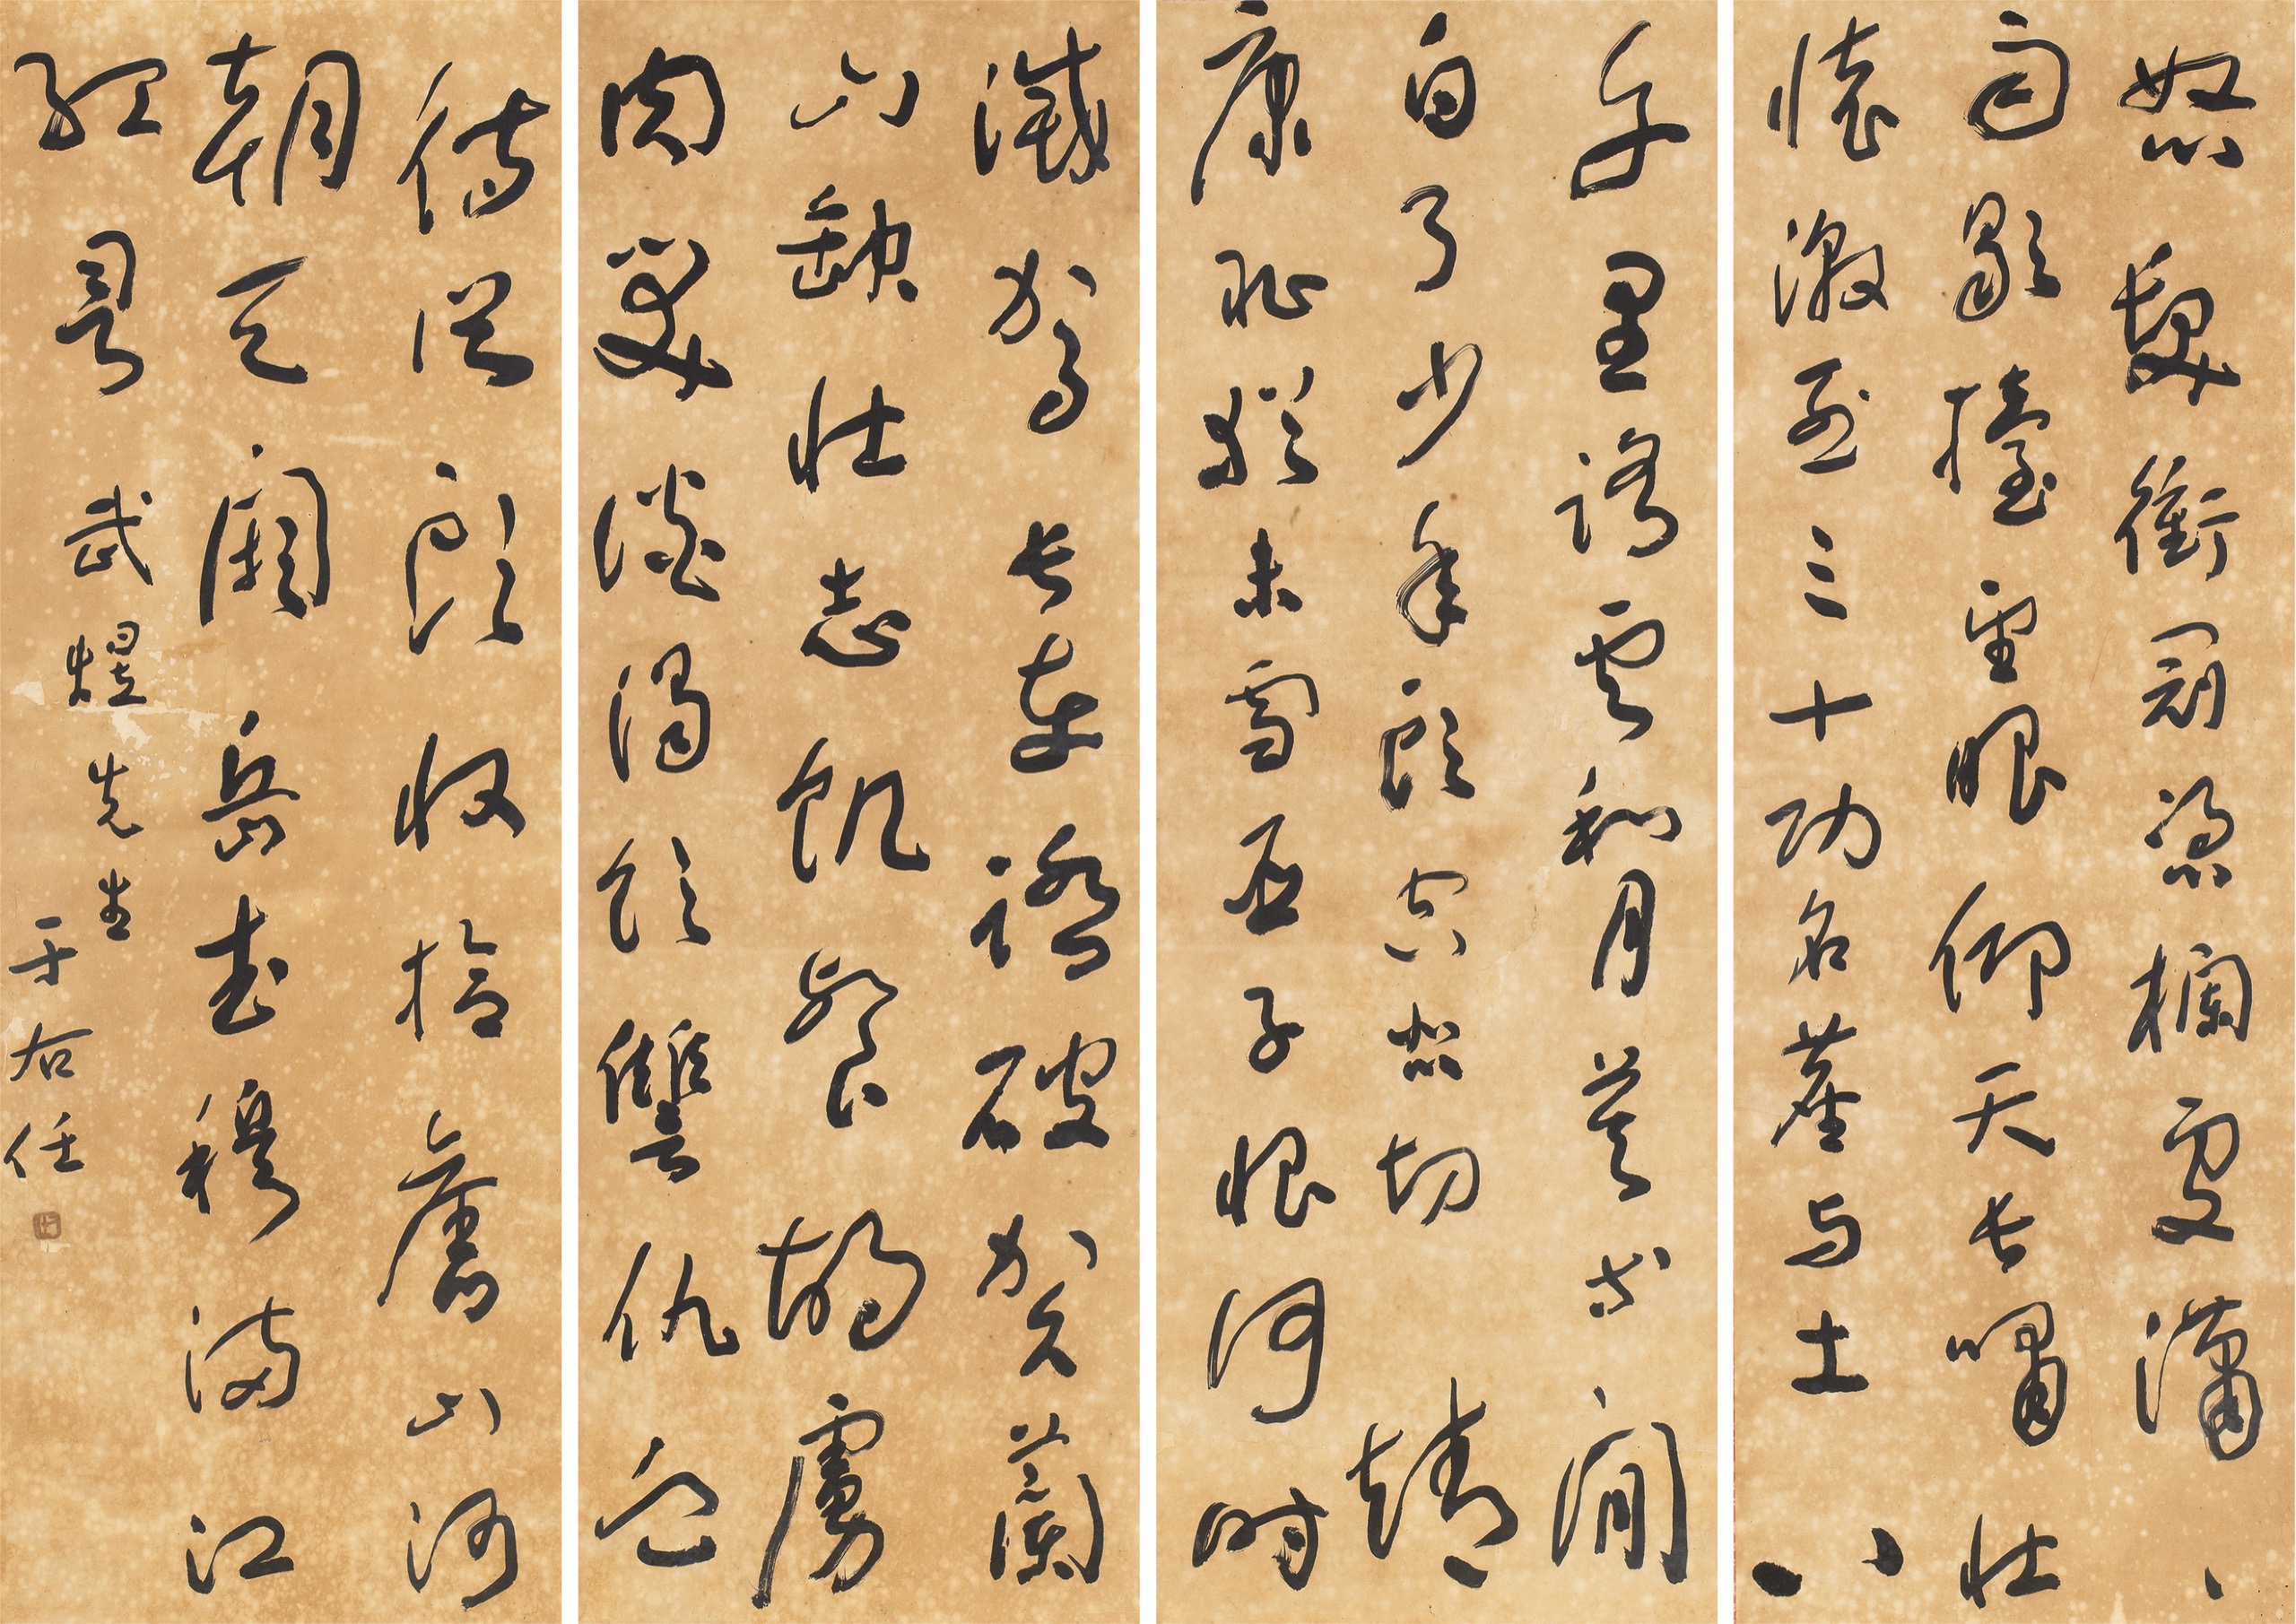 怒髮衝冠憑欄處瀟、
雨歇擡望眼仰天長嘯壯
懷激烈三十功名塵与土八
千里路雲和月莫等閒
白了少年頭空悲切靖
康恥猶未雪臣子恨何時
滅駕長車踏破賀蘭
山缺壯志飢餐胡虜
肉笑談渴飲讐仇血
待從頭收拾舊山河
朝天闕岳武穆滿江
紅詞
武煜先生
于右任